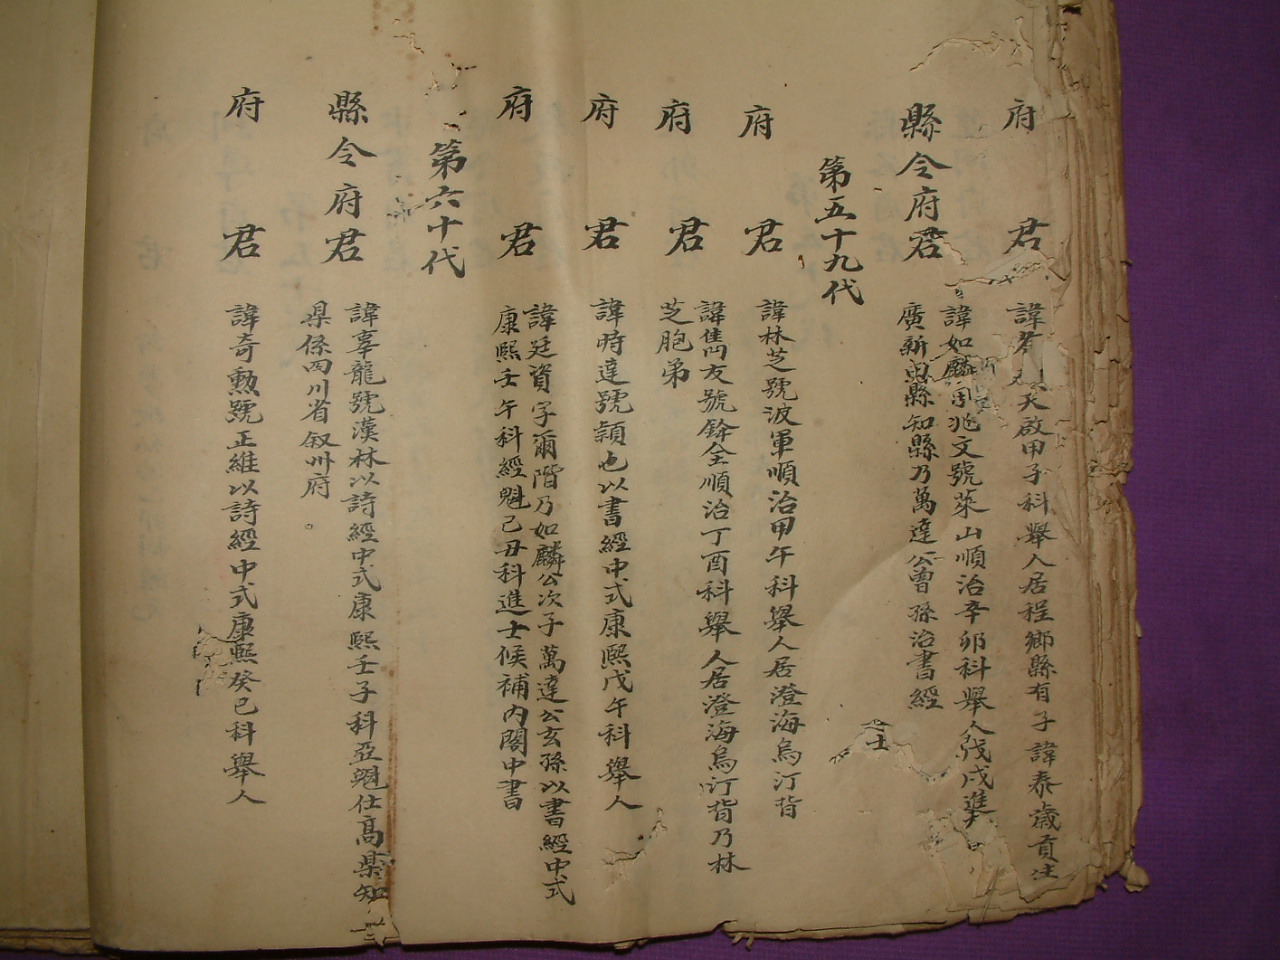 府君 諱 天啟甲子科舉人居程鄉縣有子諱泰歲貢生
縣令府君 諱如麟字兆文號萊山順治辛卯科舉人戊戌進士
廣新興縣知縣乃萬達公曾孫治書經
第五十九代
府君 諱林芝號波軍順治甲午科舉人居澄海烏汀背
府君 諱雋友號銓全順治丁酉科舉人居澄海烏汀背乃林
芝胞弟
府君 諱時達號顈也以書經中式康熙戊午科舉人
府君 諱廷資字爾階乃如麟公次子萬達公玄孫以書經中式
康熙壬午科經魁己丑科進士候補內閣中書
第六十代
縣令府君 諱辜龍號漢林以詩經中式康熙壬子科亞魁仕高梁知
係四川省叙州府。
府君 諱奇勳號正維以詩經中式康熙癸巳科舉人